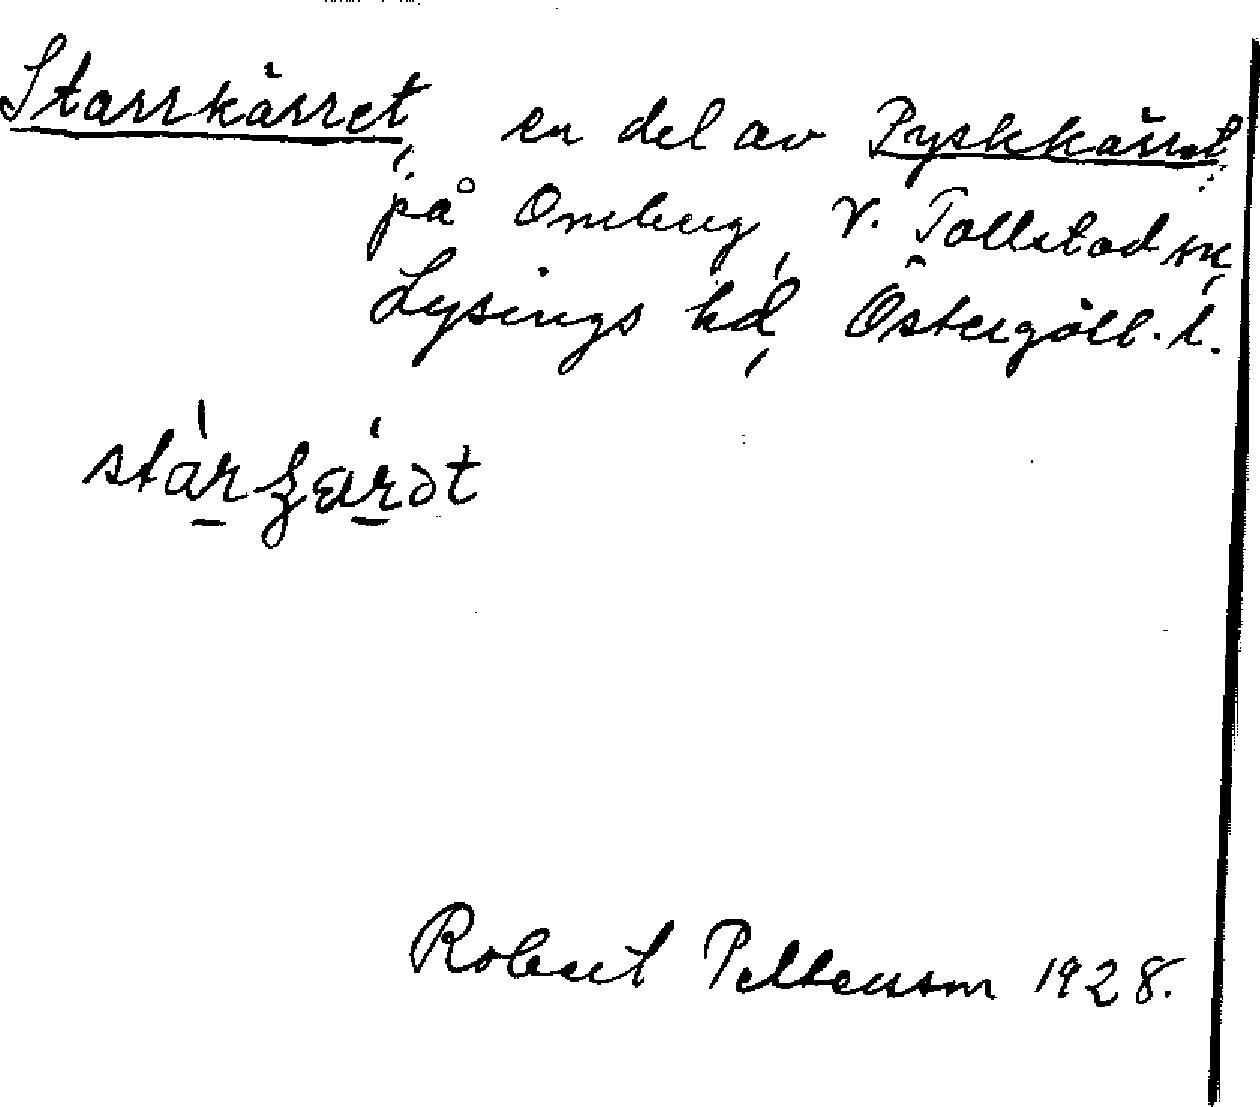 Starrkärret, en del av Pyskkärret
på Omberg, V. Tollstad sn,
Lysings hd, Östergötl. l.
Robert Pettersson 1928.